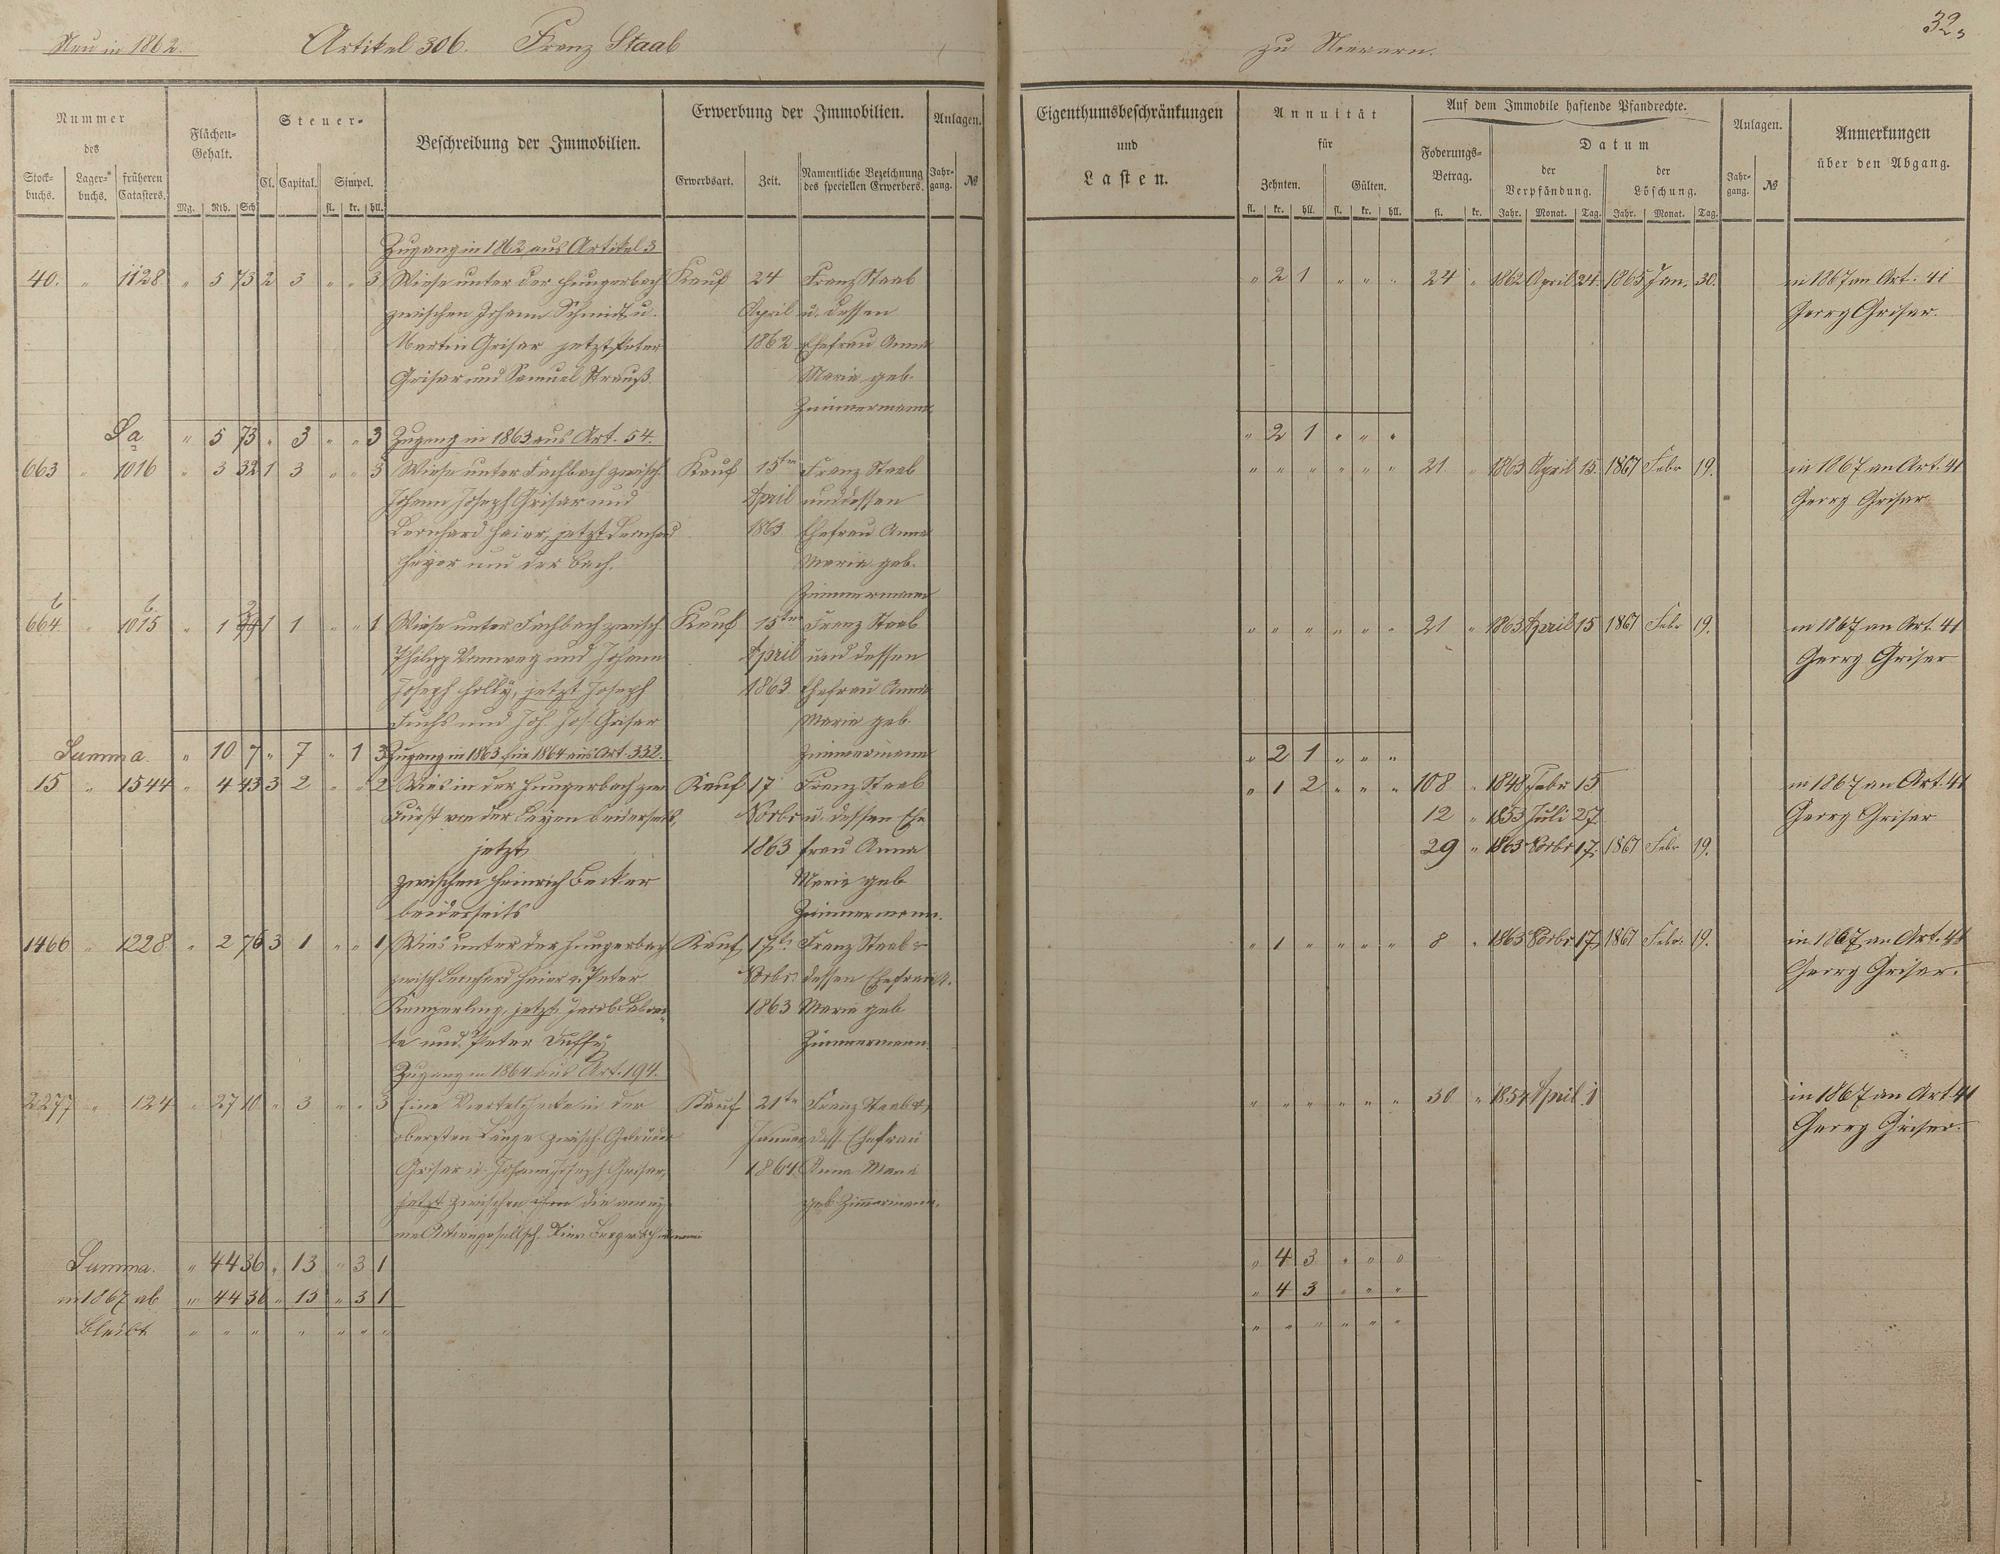 Neu in 1862. Artikel 306. Franz Staab zu Nievern. 32
Nummer des
Stock-buchs. Lager-buchs. früheren Catasters.
Flächen-Gehalt.
Mg. Rth. Sch.
Steuer-
Cl. Capital. Simpel.
fl. kr. hll.
Beschreibung der Immobilien.
Erwerbung der Immobilien.
Erwerbsart. Zeit. Namentliche Bezeichnung des speciellen Erwerbers.
Anlagen.
Jahr-gang. №
Eigenthumsbeschränkungen
und
Lasten.
Annuität
für
Zehnten. Gülten.
fl. kr. hll. fl. kr. hll.
Auf dem Immobile haftende Pfandrechte.
Foderungs-Betrag.
fl. kr.
Datum
der Verpfändung. der Löschung.
Jahr. Monat. Tag. Jahr. Monat. Tag.
Anlagen.
Jahr-gang. №
Anmerkungen
über den Abgang.
Zugang in 1862 aus Artikel 3
40. " 1128 " 5 73 2 3 " " 3 Wiese unter der Hungerbach Kauf 24 Franz Staab " 2 1 " " " 24 " 1862 April 24. 1865 Jan. 30. in 1867 an Art. 41
zwischen Johann Schmidt u. April u. dessen Georg Griser.
Martin Grisar jetzt Peter 1862 Ehefrau Anna
Grisar und Samuel Strauß. Maria geb.
Zimmermann
Sa " 5 73 " 3 " " 3 Zugang in 1863 aus Art. 54. " 2 1 " " "
663 " 1016 " 3 32 1 3 " " 3 Wiese unter Fachbach zwisch. Kauf 15ten Franz Staab " " " " " " 21 " 1863 April 15. 1867 Febr 19. in 1867 an Art. 41
Johann Joseph Grisar und April und dessen Georg Griser
Bernhard Heier, jetzt Bernhard 1863 Ehefrau Anna
Heyer und der Bach. Maria geb.
Zimmermann
664 " 1015 " 1 1 1 " " 1 Wiese unter Fachbach zwisch. Kauf 15ten Franz Staab " " " " " " 21 " 1863 April 15 1867 Febr 19. in 1867 an Art. 41
Philipp und Johann April und dessen Georg Griser
Joseph Holly, jetzt Joseph 1863 Ehefrau Anna
Fuchs und Joh. Jos. Griser Maria geb.
Summa. " 10 7 " 7 " 1 3 Zugang in 1863 für 1864 aus Art. 332. Zimmermann " 2 1 " " "
15 " 1544 " 4 43 3 2 " " 2 Wies in der Hungerbach zw. Kauf 17 Franz Staab " 1 2 " " " 108 " 1848 Febr 15 in 1867 an Art. 41
Fürst von der Leyen beiderseits, Novbr u. dessen Ehe 12 " 1853 Juli 27 Georg Griser
jetzt 1863 frau Anna 29 " 1863 Novbr 17. 1867 Febr 19.
zwischen Heinrich Becker Maria geb
beiderseits Zimmermann.
1466 " 1228 " 2 76 3 1 " " 1 Wies unter der Hungerbach Kauf 17ts Franz Staab & " 1 " " " " 8 " 1863 Novbr 17 1867 Febr. 19. in 1867 an Art. 41
zwisch Bernhard Heier & Peter Novbr. dessen Ehefrau A. Georg Griser.
jetzt Jacob 1863 Maria geb
te und Peter Duffy Zimmermann.
Zugang in 1864 aus Art. 194.
2277 " 124 " 27 10 " 3 " " 3 Eine in der Kauf 21te Franz Staab & " " " " " " 30 " 1854 April 1 in 1867 an Art 41
obersten Länge zwisch. Gebrüder Januar dess. Ehefrau Georg Griser.
Grisar u. Johann Joseph Griser, 1864 Anna Maria
jetzt zwischen die anony- geb. Zimmermann.
me Actiengesellsch.
Summa. " 44 36 " 13 " 3 1 " 4 3 " " "
in 1867 ab " 44 36 " 13 " 3 1 " 4 3 " " "
bleibt " " " " " " " " " " " " "